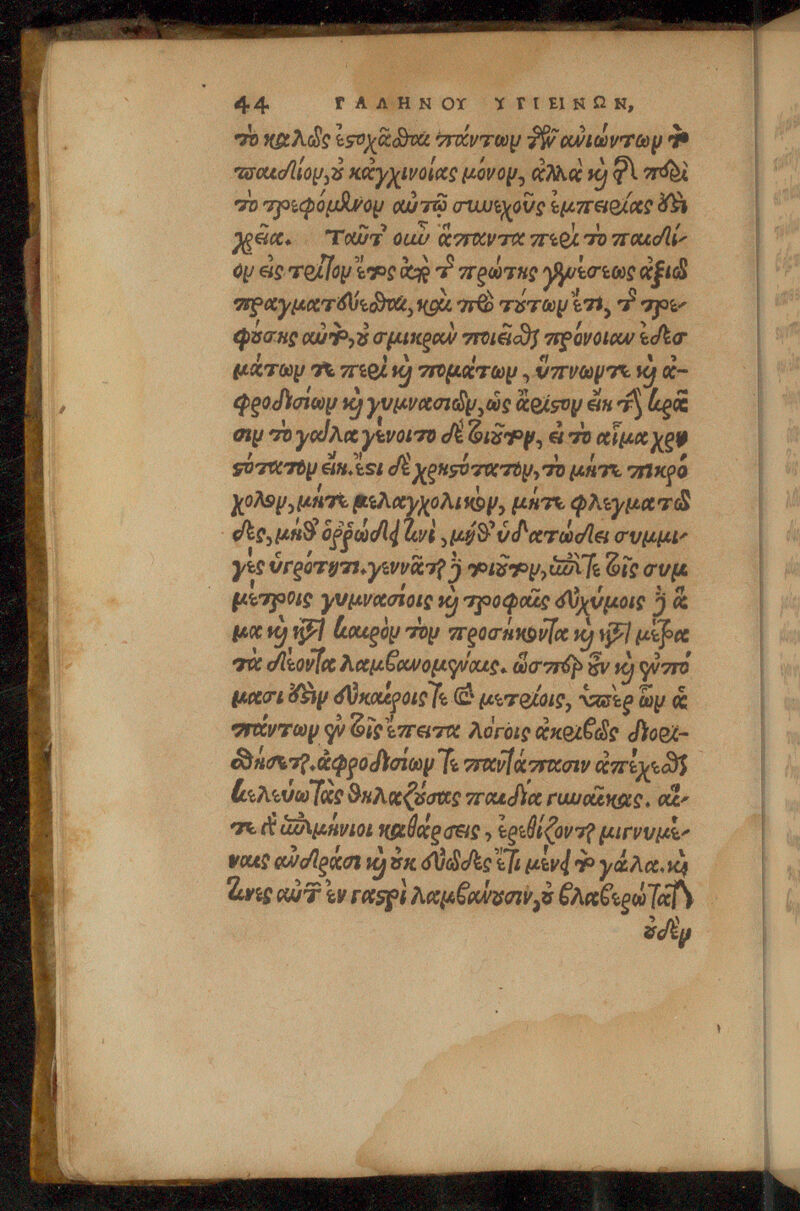 44 ΓΑΛΗΝΟΥ ΥΓΙΕΙΝΩΝ,
τὸ καλῶς ἐστοχᾶσθαι πάντων τῶν ἀνιώντων τὸ
παιδίον, οὐ κἀγχινοίας μόνον, ἀλλὰ καὶ τῆς περὶ
τὸ τρεφόμενον αὐτῷ συνεχοῦς ἐμπειρίας ἐστὶ
χρεία. Ταῦτ' οὖν ἅπαντα περὶ τὸ παιδί-
ον εἰς τρίτον ἔτος ἀπὸ τῆς πρώτης γενέσεως ἀξιῶ
πραγματεύεσθαι, καὶ πρὸ τούτων ἔτι, τῆς τρε-
φούσης αὐτό, οὐ σμικρὰν ποιεῖσθαι πρόνοιαν ἐδεσ
μάτων τε πέρι καὶ πομάτων, ὕπνων τε καὶ ἀ-
φροδισίων καὶ γυμνασιῶν, ὡς ἄριστον εἴη τῇ κρά
σιν τὸ γάλα. γένοιτο δὲ τοιοῦτον, εἰ τὸ αἷμα χρη
στότατον εἴη. ἔστι δὲ χρηστότατον, τὸ μήτε πικρό
χολον, μήτε μελαγχολικὸν, μήτε φλεγματῶ
δες, μήθ' ὀρρώδει τινὶ, μήθ' ὑδατώδει συμμι-
γὲς ὑγρότητι. γεννᾶται δὲ τοιοῦτον, ἐπί τε τοῖς συμ
μέτροις γυμνασίοις καὶ τροφαῖς εὐχύμοις τε ἅ
μα καὶ κατὰ καιρὸν τὸν προσήκοντα καὶ κατὰ μέτρα
τὰ δέοντα λαμβανομέναις. ὥσπερ οὖν καὶ ἐν πό
μασιν εὐκαίροις τε καὶ μετρίοις, ὑπὲρ ὧν ἁ
πάντων ἐν τοῖς ἔπειτα λόγοις ἀκριβῶς διορι-
σθήσεται. ἀφροδισίων τε παντάπασιν ἀπέχεσθαι
κελεύω τὰς θηλαζούσας παιδία γυναῖκας. αἵ-
τε ἐπιμήνιοι καθάρσεις, ἐρεθίζονται μιγνυμέ-
ναις ἀνδράσι καὶ οὐκ εὐῶδες ἔτι μένει τὸ γάλα. καὶ
τινες αὐτῶν ἐν γαστρὶ λαμβάνουσιν, οὗ βλαβερώτατον
οὐδὲν